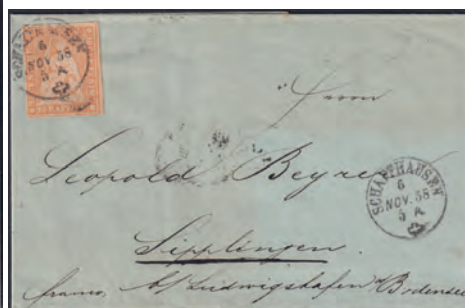 SCHAFFHAUSEN
6
NOV. 58
5 A.
Herrn
Leopold Beyre
SCHAFFHAUSEN
6
NOV. 58
5 A.
Sipplingen
franco, b/ Ludwigshafen a/Bodensee